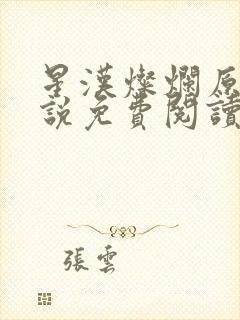 星漢燦爛原
說免費閱讀
張雲